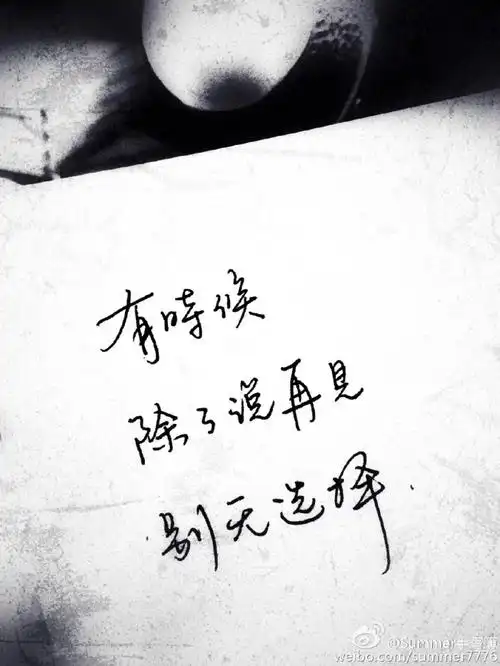 有時候
除了说再見
别无选择.
@Summer
weibo.com/summer7776